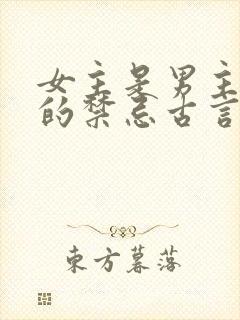 女主是男主
的禁忌古言
东方暮落